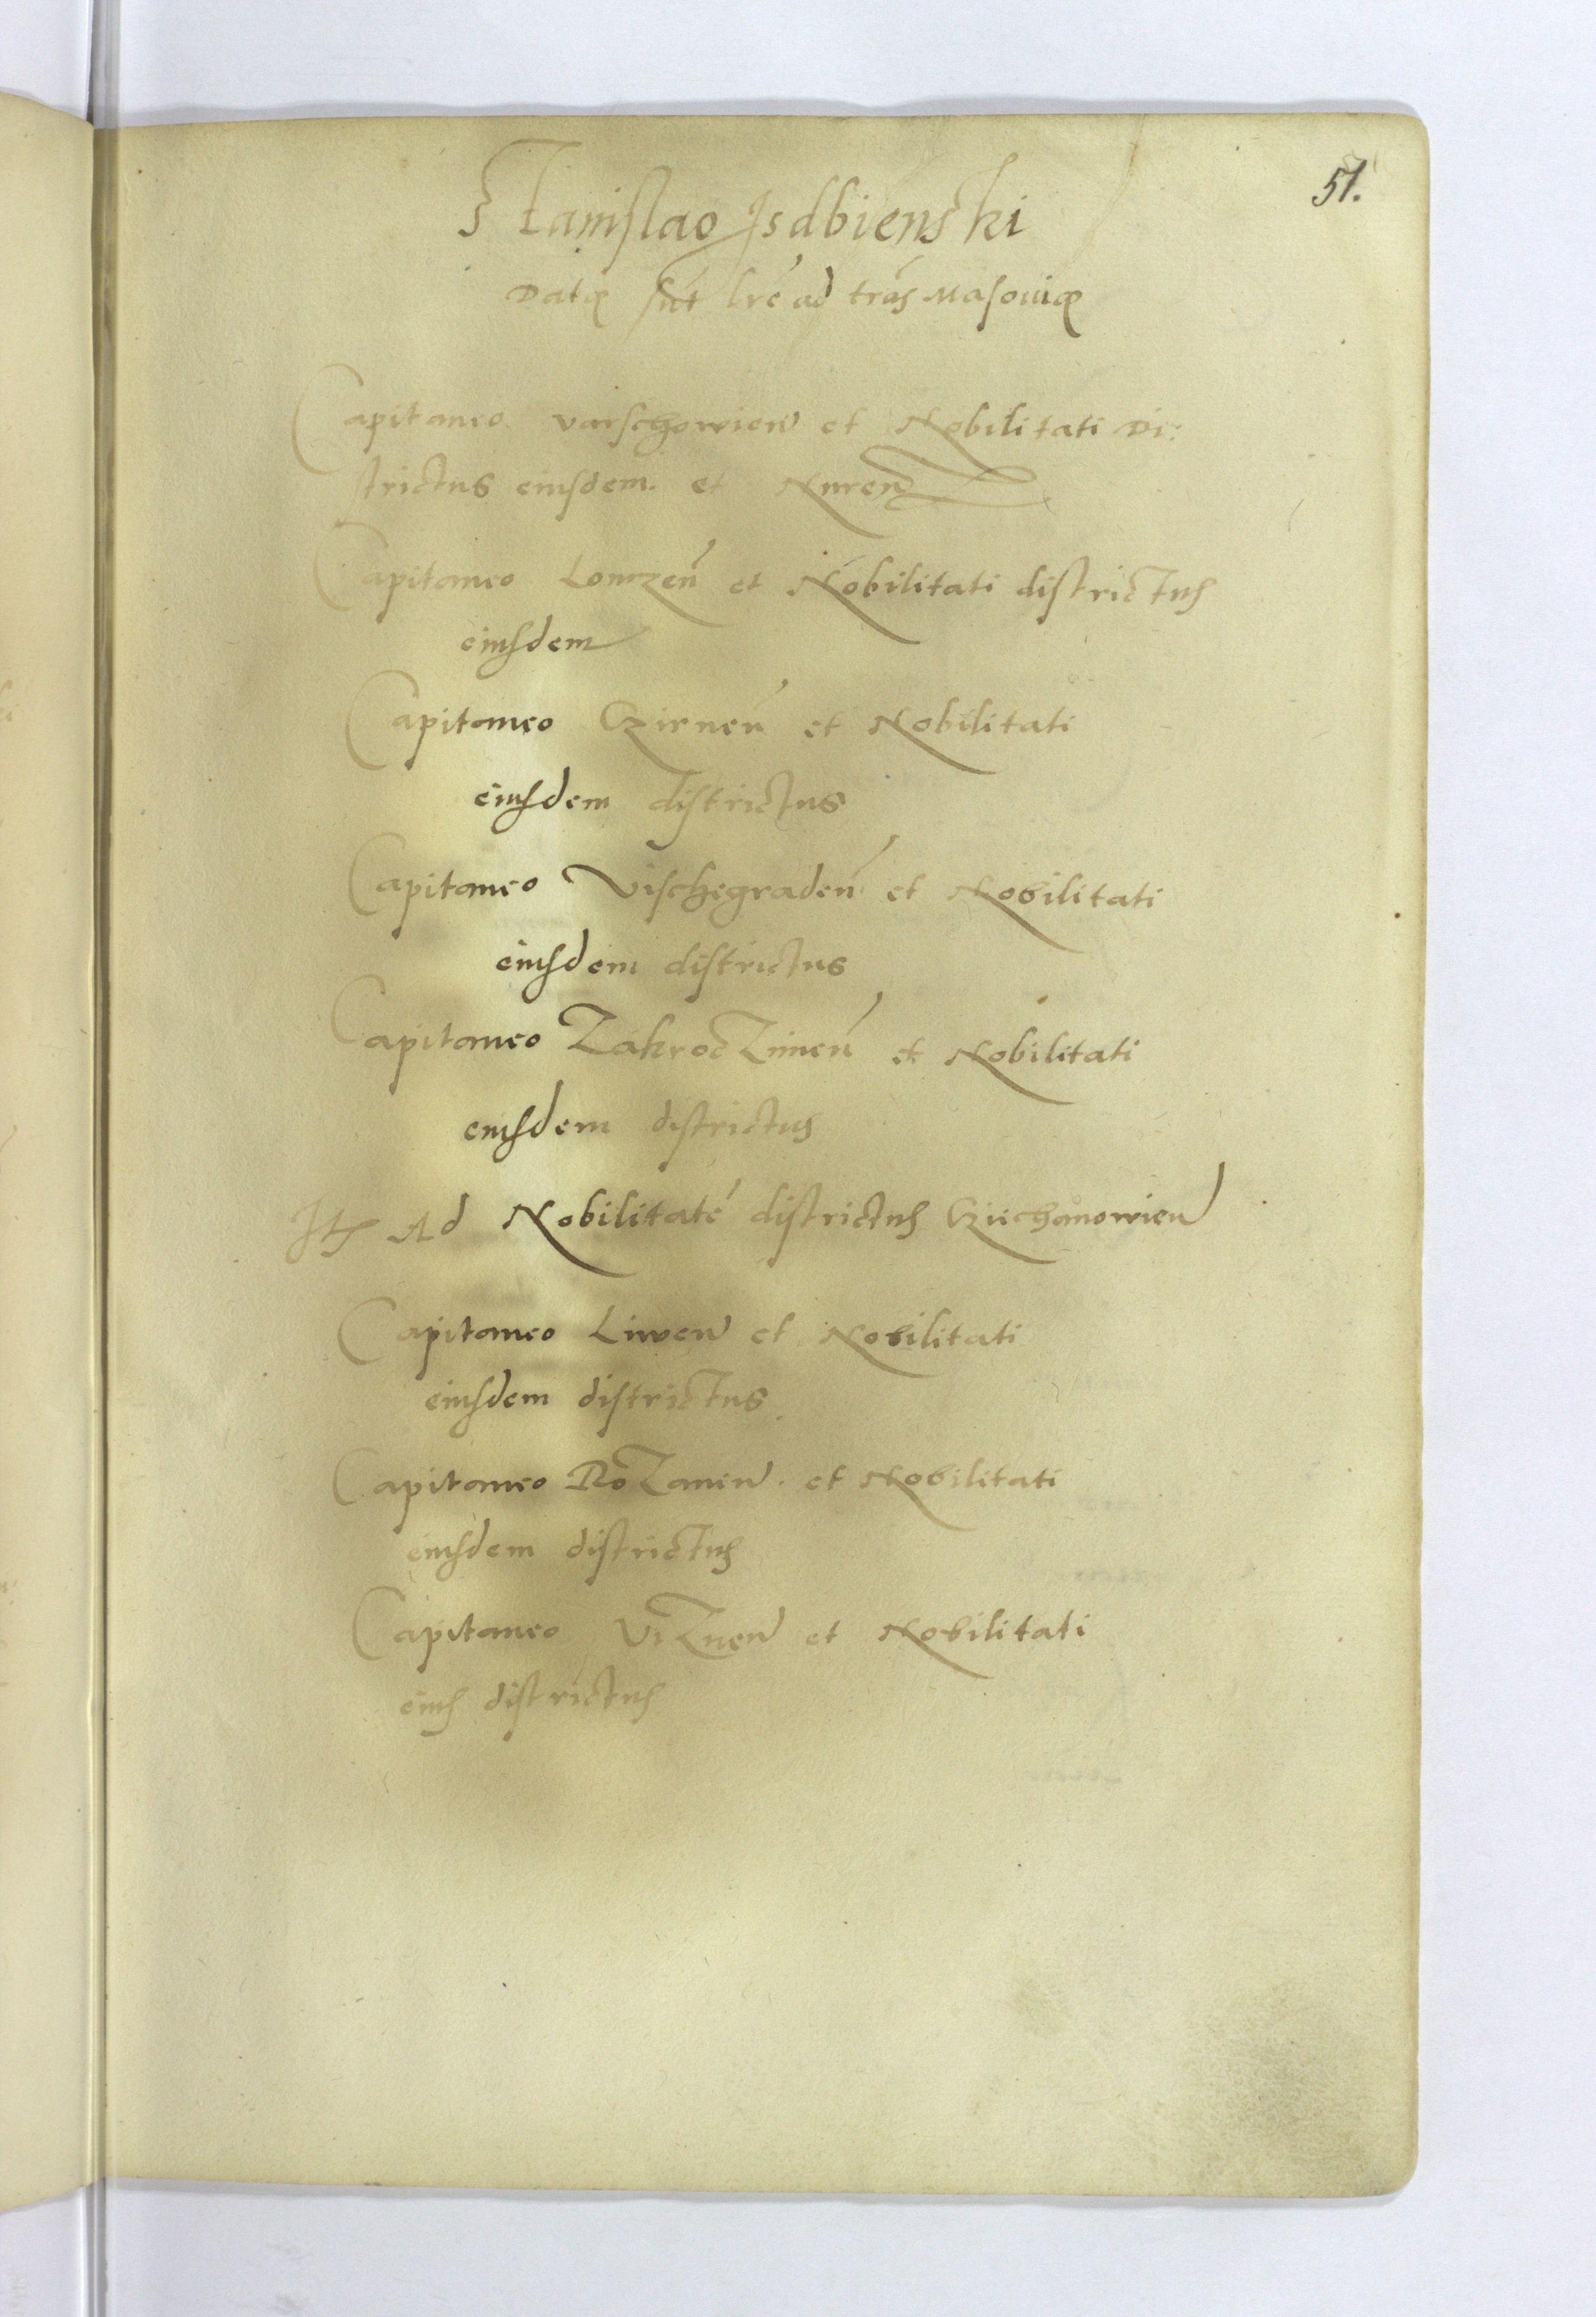 51.
Stanislao Isdbienski
Datę sūt lrē ad trās Masouię
Capitaneo varschowien̄ et Nobilitati Di:
strictus eiusdem. et Nuren̄
Capitaneo Lomzen̄ et Nobilitati districtus
eiusdem
Capitaneo Czirnen̄ et Nobilitati
eiusdem districtus
Capitaneo Vischegraden̄ et Nobilitati
eiusdem districtus
Capitaneo Zakroczimen̄ et Nobilitati
eiusdem districtus
Itē Ad Nobilitatē districtus Cziechanowien̄
Capitaneo Liwen̄ et Nobilitati
eiusdem districtus
Capitaneo Rozanen̄. et Nobilitati
eiusdem districtus
Capitaneo Viznen̄ et Nobilitati
eius districtus